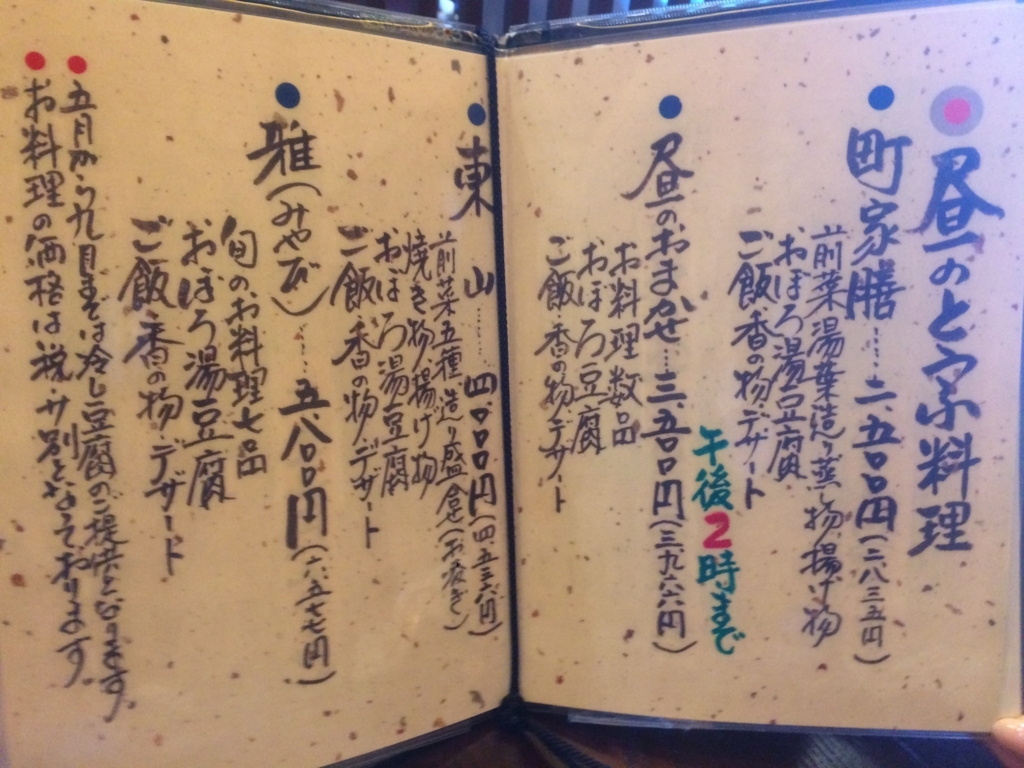 昼のとうふ料理
町家膳……二、五〇〇円(二、八三五円)
前菜、湯葉造り、蒸し物、揚げ物
おぼろ湯豆腐
ご飯、香の物、デザート
午後2時まで
昼のおまかせ…三、五〇〇円(三、九六六円)
お料理数品
おぼろ豆腐
ご飯、香の物、デザート
東山……四、〇〇〇円(四、五三六円)
前菜五種、造り盛合せ(お凌ぎ)
焼き物、揚げ物
おぼろ湯豆腐
ご飯、香の物、デザート
雅(みやび)……五、八〇〇円(六、五七七円)
旬のお料理七品
おぼろ湯豆腐
ご飯、香の物、デザート
五月から九月までは冷し豆腐のご提供となります。
お料理の価格は税・サ別となっております。